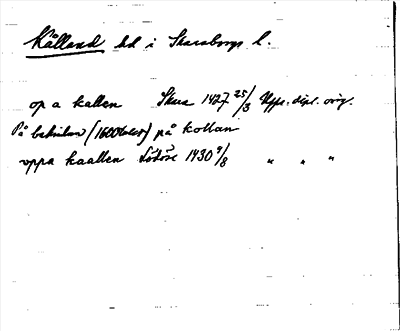 Kålland hd i Skaraborgs l.
op a kallen Skara 1427 25/3 Upps. dipl. orig.
På baksidan (1600talet) på kollan
uppa kaallen Lödöse 1430 9/8 " " "